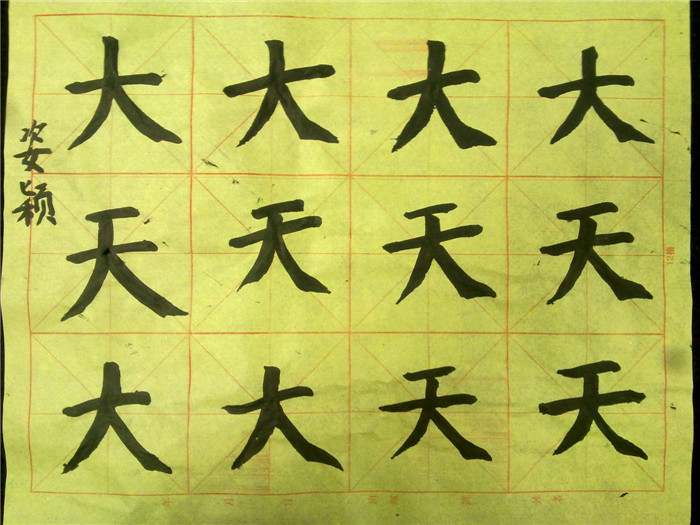 大大大大
天天天天
大大天天
姿颖
12格